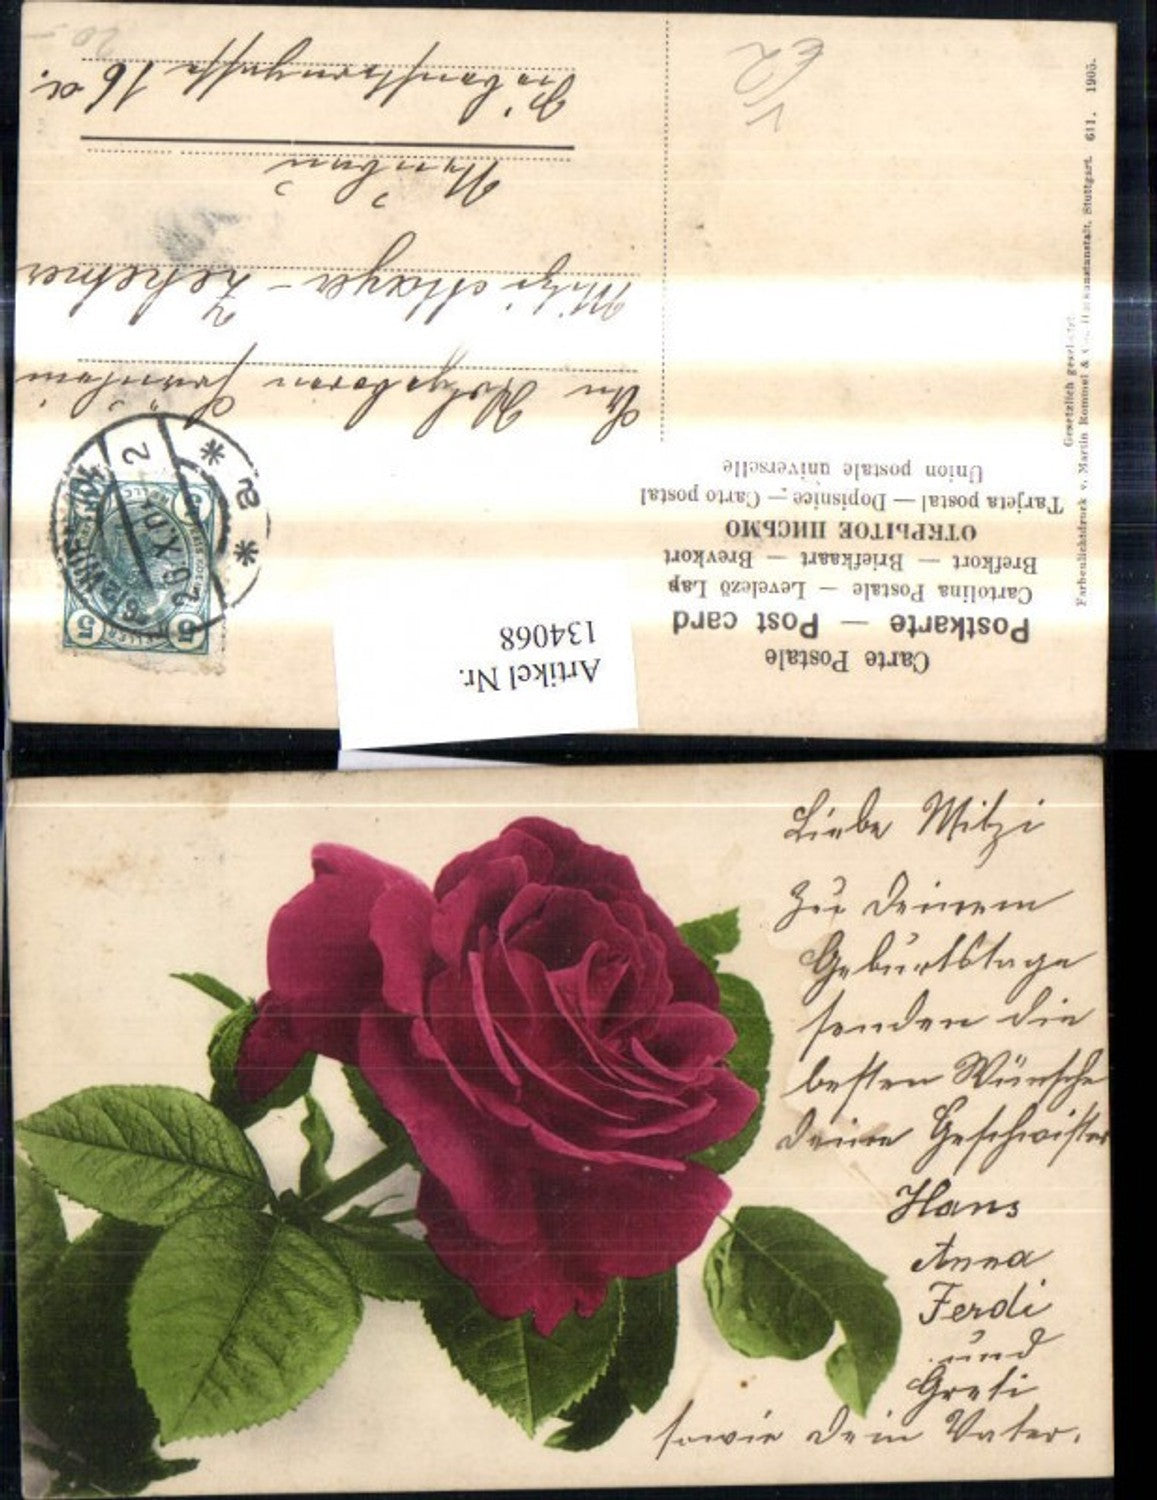 Carte Postale
Postkarte — Post card
Cartolina Postale — Levelező Lap
Brefkort — Briefkaart — Brevkort
ОТКРЫТОЕ ПИСЬМО
Tarjeta postal — Dopisnice — Carto postal
Union postale universelle
Artikel Nr.
134068
5 5
WIEN
26 X 0
2
* a *
An Wolgeboren Fräulein
Mitzi Mayer-Zehetner
16 a.
Farbenlichtdruck v. Martin Rommel & Co., Hofkunstanstalt, Stuttgart. 611. 1905.
Gesetzlich geschützt
20
Liebe Mitzi
Zu Deinem
Geburtstage
senden die
besten Wünsche
deine Geschwister
Hans
Anna
Ferdi
und
Greti
sowie Dein Vater.